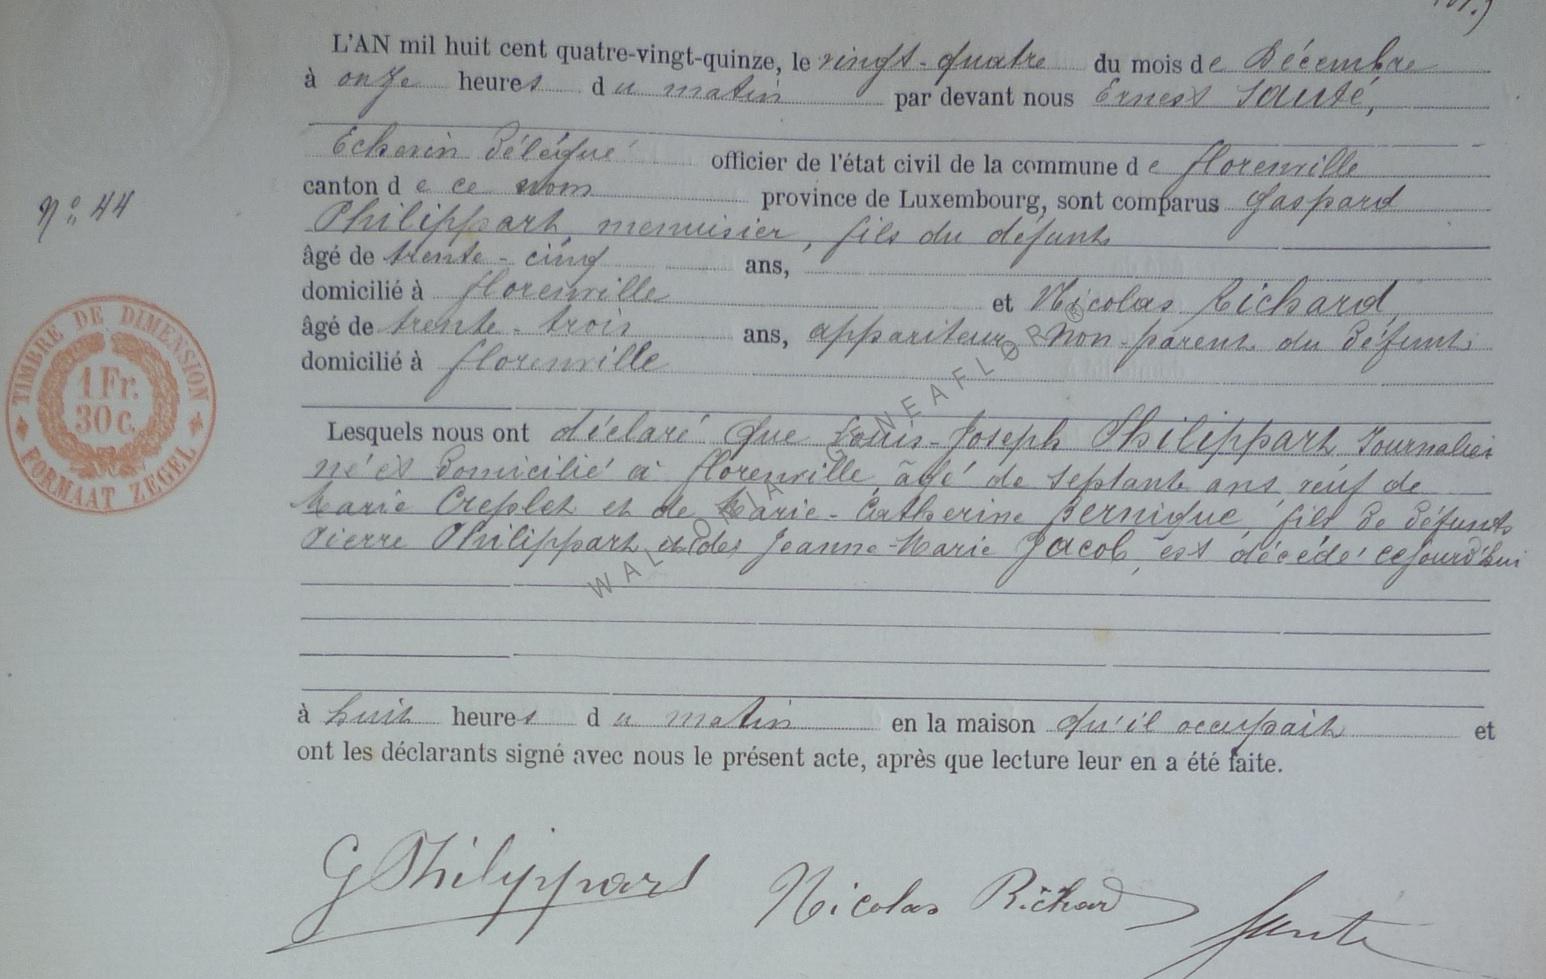 L'AN mil huit cent quatre-vingt-quinze, le vingt-quatre du mois de Décembre
à onze heures du matin par devant nous Ernest Santé,
Echevin délégué officier de l'état civil de la commune de florenville
canton de ce nom province de Luxembourg, sont comparus Gaspard
Philippart, menuisier, fils du défunt
âgé de trente-cinq ans,
domicilié à florenville et Nicolas Richard,
âgé de trente-trois ans, appariteur non-parent du défunt
domicilié à florenville
Lesquels nous ont déclaré que Louis-Joseph Philippart Journalier
né et domicilié à florenville, âgé de septante ans, veuf de
Marie Creplet et de Marie-Catherine Bernique, fils de défunts
Pierre Philippart et de Jeanne-Marie Jacob, est décédé cejourd'hui
à huit heures du matin en la maison qu'il occupait et
ont les déclarants signé avec nous le présent acte, après que lecture leur en a été faite.
G Philippart Nicolas Richard Santé
Nº 44
TIMBRE DE DIMENSION
1 Fr.
30 c.
FORMAAT ZEGEL